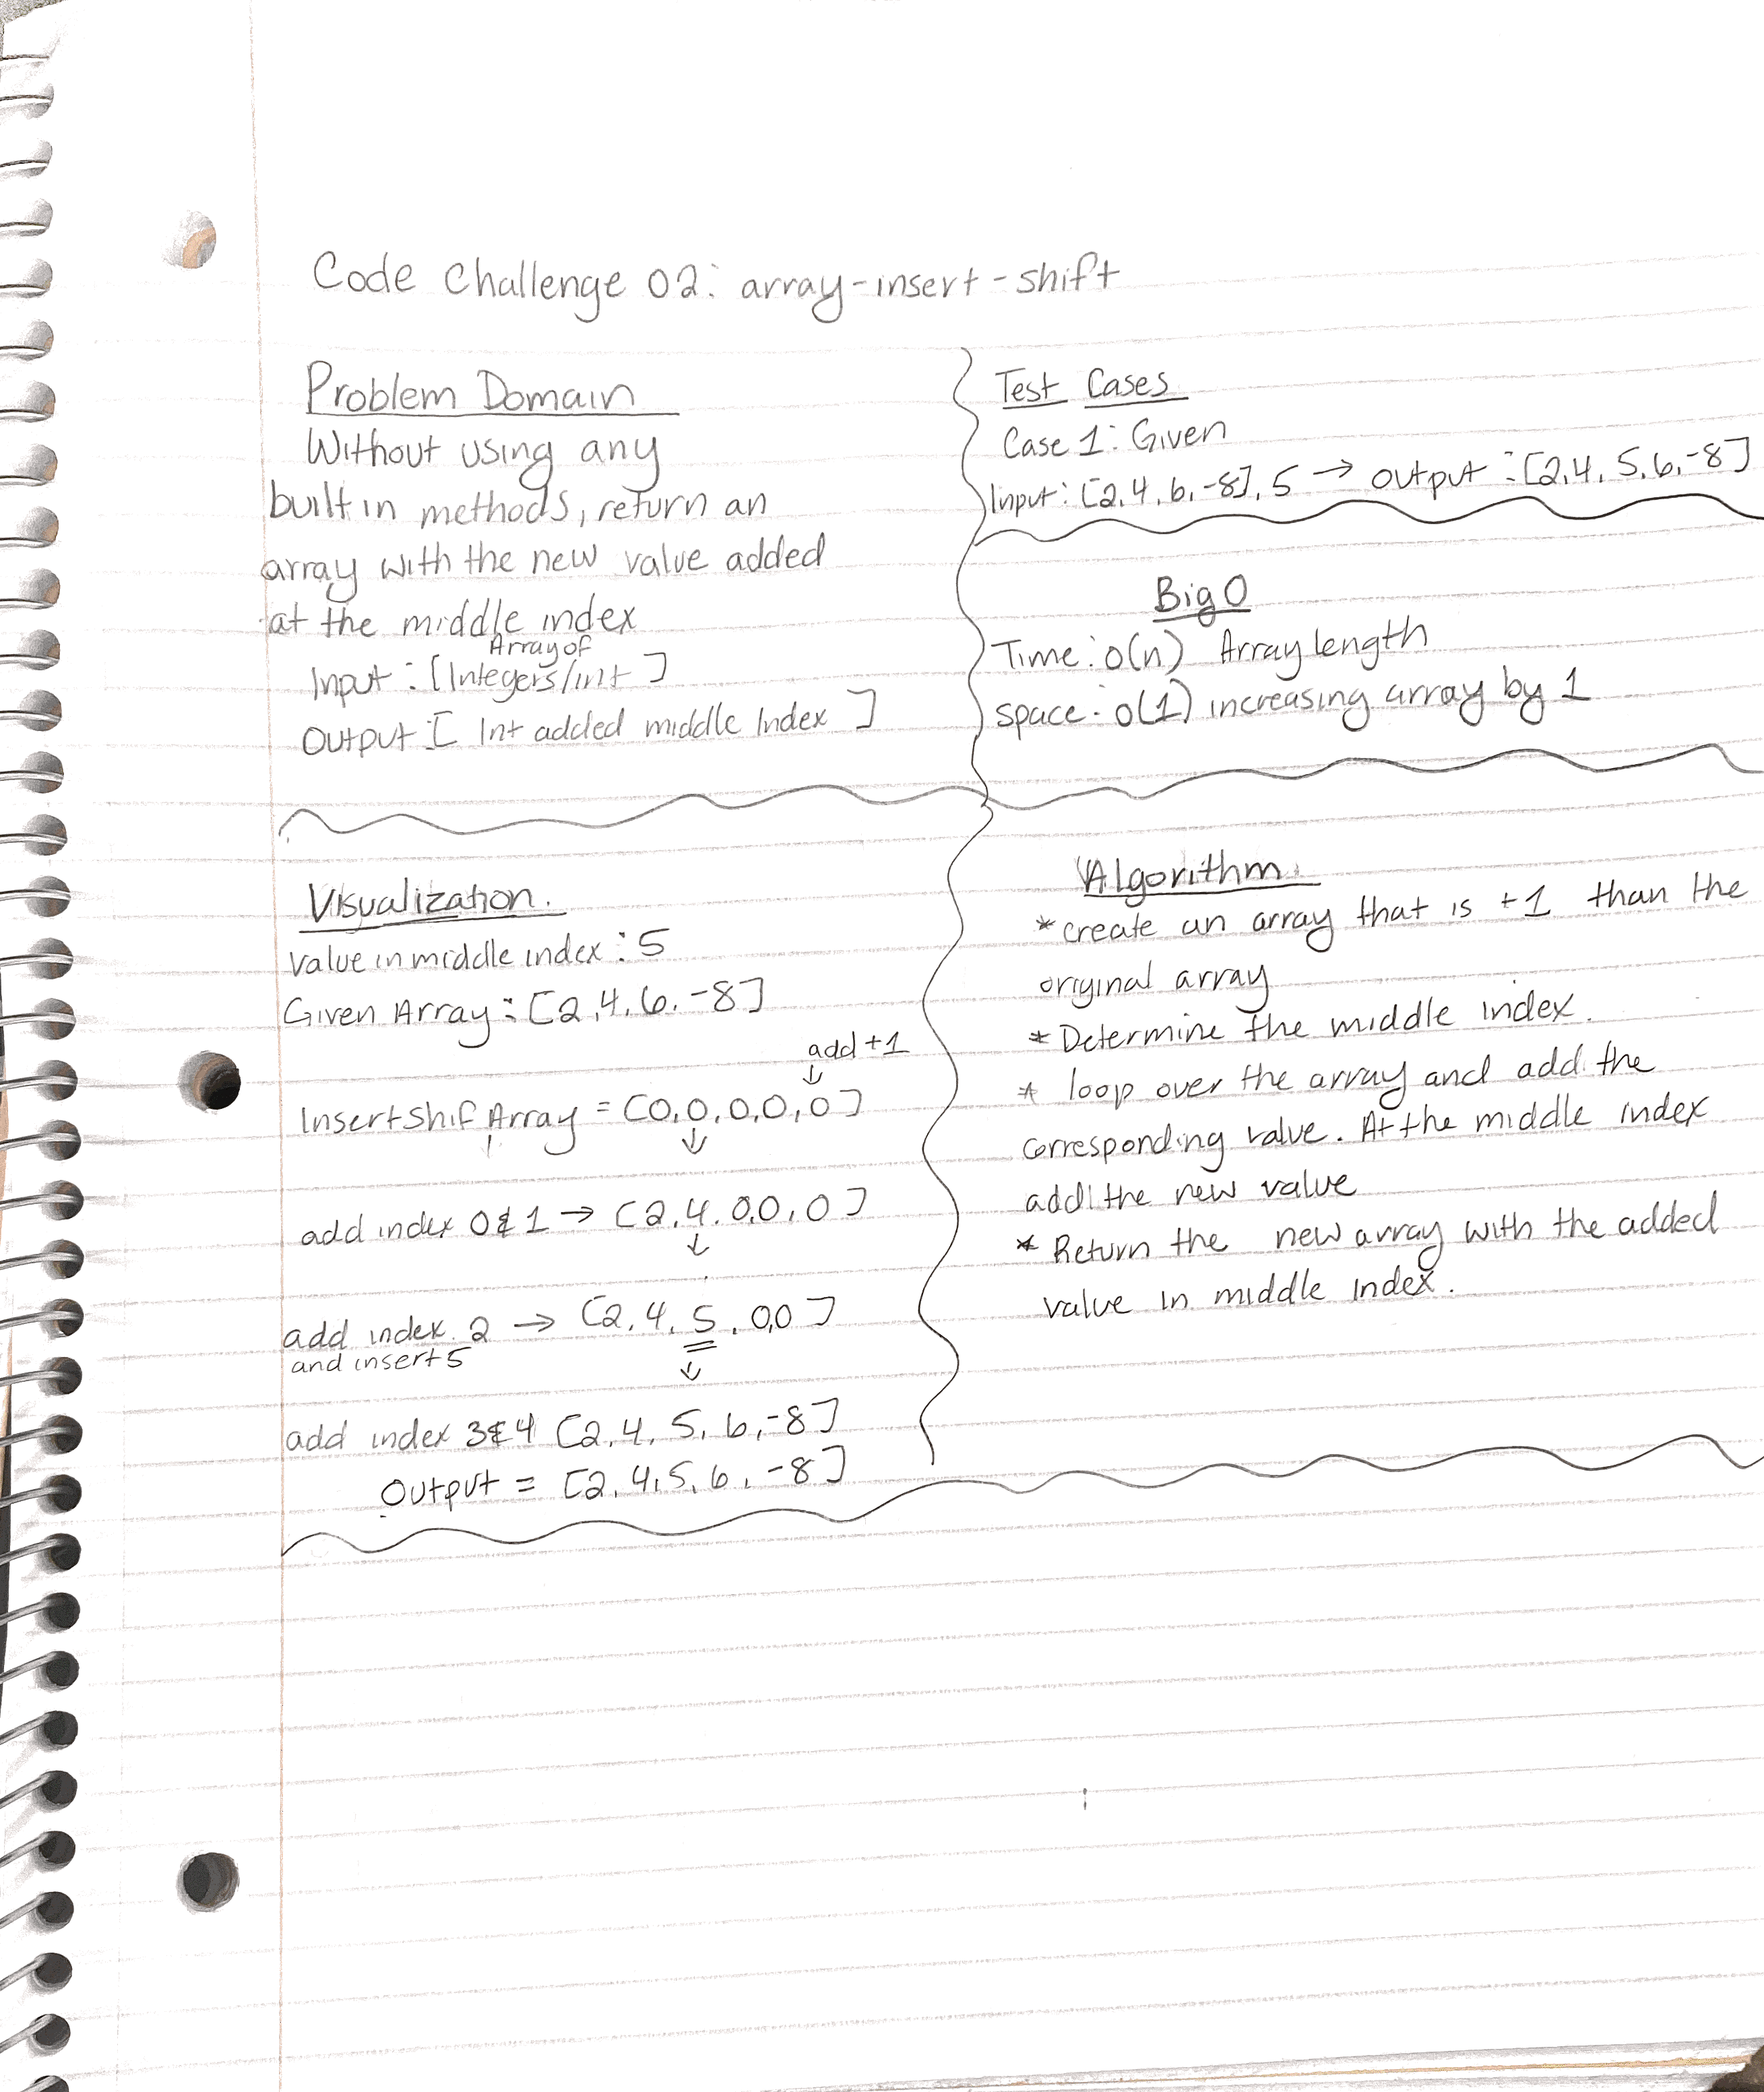 Code Challenge 02: array-insert-shift
Problem Domain
Without using any
built in methods, return an
array with the new value added
at the middle index
Array of
Input: [Integers/int]
Output: [Int added middle Index]
Test Cases
Case 1: Given
Input: [2,4,6,-8], 5 → output: [2,4,5,6,-8]
Big O
Time: O(n) Array length
space: O(1) increasing array by 1
Visualization.
value in middle index: 5
Given Array: [2,4,6,-8]
add +1
↓
InsertShif Array = [0,0,0,0,0]
↓
add index 0 & 1 → [2,4,0,0,0]
↓
add index 2 → [2,4,5,0,0]
and insert 5
↓
add index 3 & 4 [2,4,5,6,-8]
Output = [2,4,5,6,-8]
Algorithm
* create an array that is +1 than the
original array
* Determine the middle index.
* loop over the array and add the
corresponding value. At the middle index
add the new value
* Return the new array with the added
value in middle index.